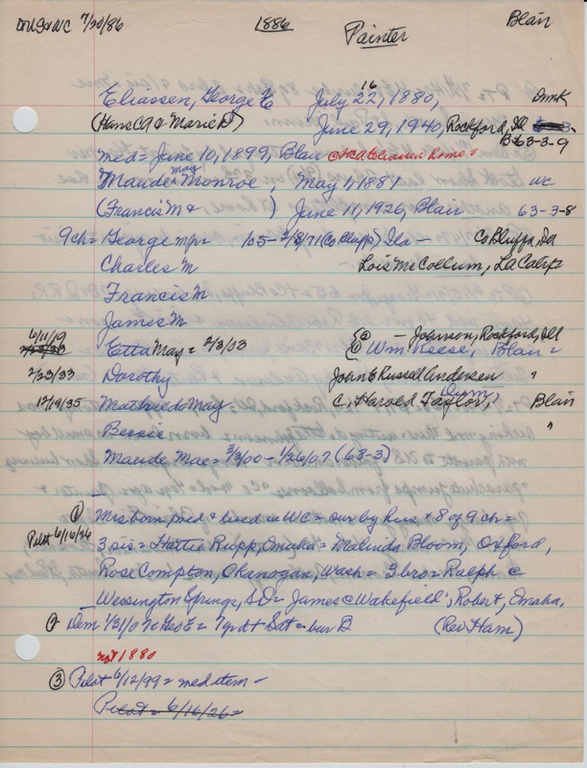 7/20/86 1886 Painter Blair
Eliassen, George E July 22, 1880, 16 Dnmk
(Hans CA & Marie D) June 29, 1940, Rockford, Ill
63-3-9
med = June 10, 1899, Blair home
Maude May Monroe, May 1, 1881 WC
(Francis M & ) June 11, 1926, Blair 63-3-8
9ch = George mgr = 65 - 3/8/71 (Co Bluffs) Ila - Co Bluffs, Ia
Charles M Lois McCollum, La Calif
Francis M
James M
6/11/19 Etta May = 2/3/33 ① - Johnson, Rockford, Ill
② Wm Reese, Blair =
2/23/33 Dorothy John E Russell Andersen "
12/19/35 Mathiedo May C. Harold Taylor, Blair
Bessie "
Maude Mae = 3/3/00 - 1/26/07 (63-3)
① Mrs born, med & lived in WC = sur by hus & 8 of 9 ch =
Pilot 6/16/26 3 sis = Hattie Rupp, Omaha = Malinda Bloom, Oxford,
Rose Compton, Okanogan, Wash = 3 bro = Ralph @
Wessington Springs, SD = James @ Wakefield; Robert, Omaha,
Dem 1/31/07 Geo E = 7 yr dt Sat = bur B (Rev Ham)
not 1880
③ Pilot 6/12/99 = med item -
Pilot = 6/16/26 =